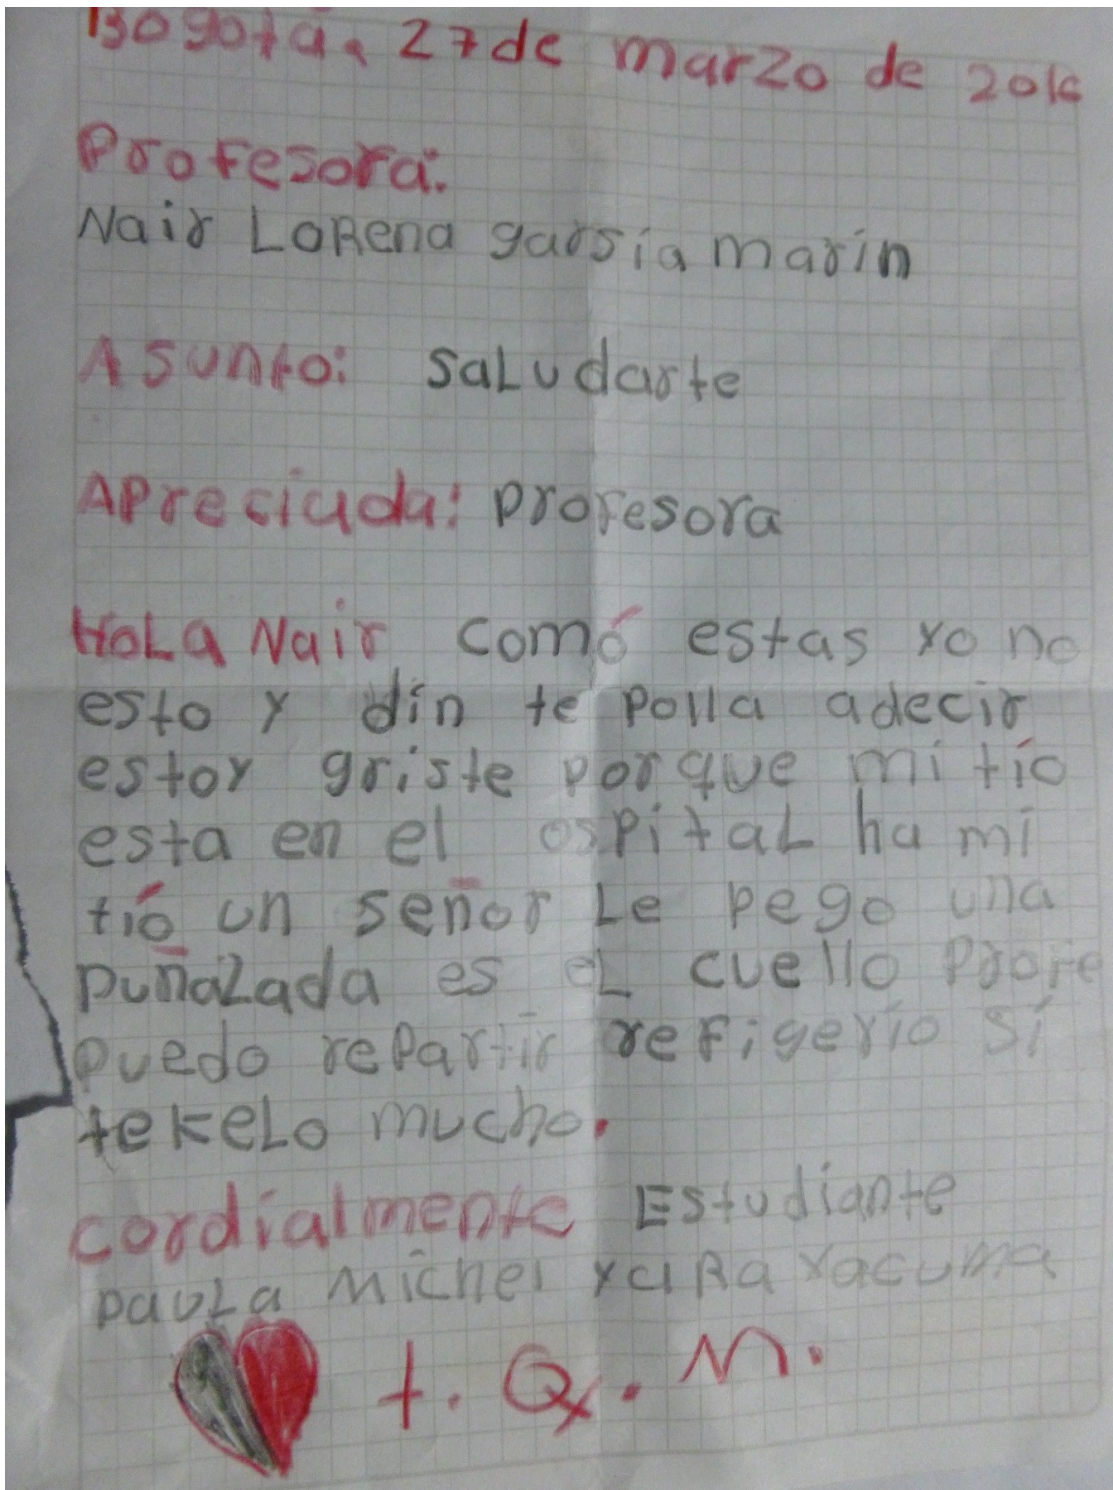 Bogotá, 27 de marzo de 2016
Profesora:
Nair LoRena garsía marín
Asunto: saLudarte
APreciada: profesora
HoLa Nair comó estas yo no
esto y dín te polla adecir
estoy griste porque mi tío
esta en el ospitaL ha mi
tió un señor Le pego una
puñaLada es eL cuello profe
puedo repartir refigerio sí
te keLo mucho.
cordialmente Estudiante
pauLa Michel yaRa yacuma
t. Q. M.